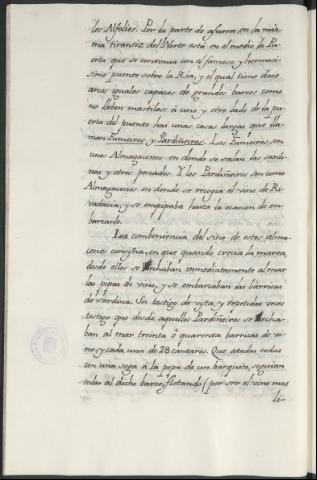 los Alfolies. Por la parte de afuera, en la mis-
ma tirantèz del Norte està en el medio la Pu-
erta que se continua con el famoso y hermosi-
simo puente sobre la Ria, y el qual tiene doce
arcos iguales capaces de grandes barcos como
no lleben mastiles: à uno, y otro lado de la pu-
erta del puente hai unas casas largas que lla-
man Fumeiros y Pardiñeiros. Los Fumeiros son
unos Almagacenes en donde se salan las sardi-
nas y otros pescados. Y los Pardiñeiros son como
Almagacenes en donde se recogia el vino de Ri-
vadavia, y se empipaba hasta la ocasion de em-
barcarle.
Lea combeniencia del sitio de estos Alma-
cenes consistia, en que quando crecia la marea,
desde ellos se echaban inmediatamente al mar
las pipas de vino, y se embarcaban las barricas
de sardina. Soi testigo de vista, y repetidas veces
testigo que desde aquellos Pardiñeiros se echa-
ban al mar treinta ò quarenta barricas de vi-
no y cada una de 28 cantares. Que atadas todas
con una soga à la popa de un barquito, seguian
todas al dicho barco, flotando (por ser el vino mas
li-